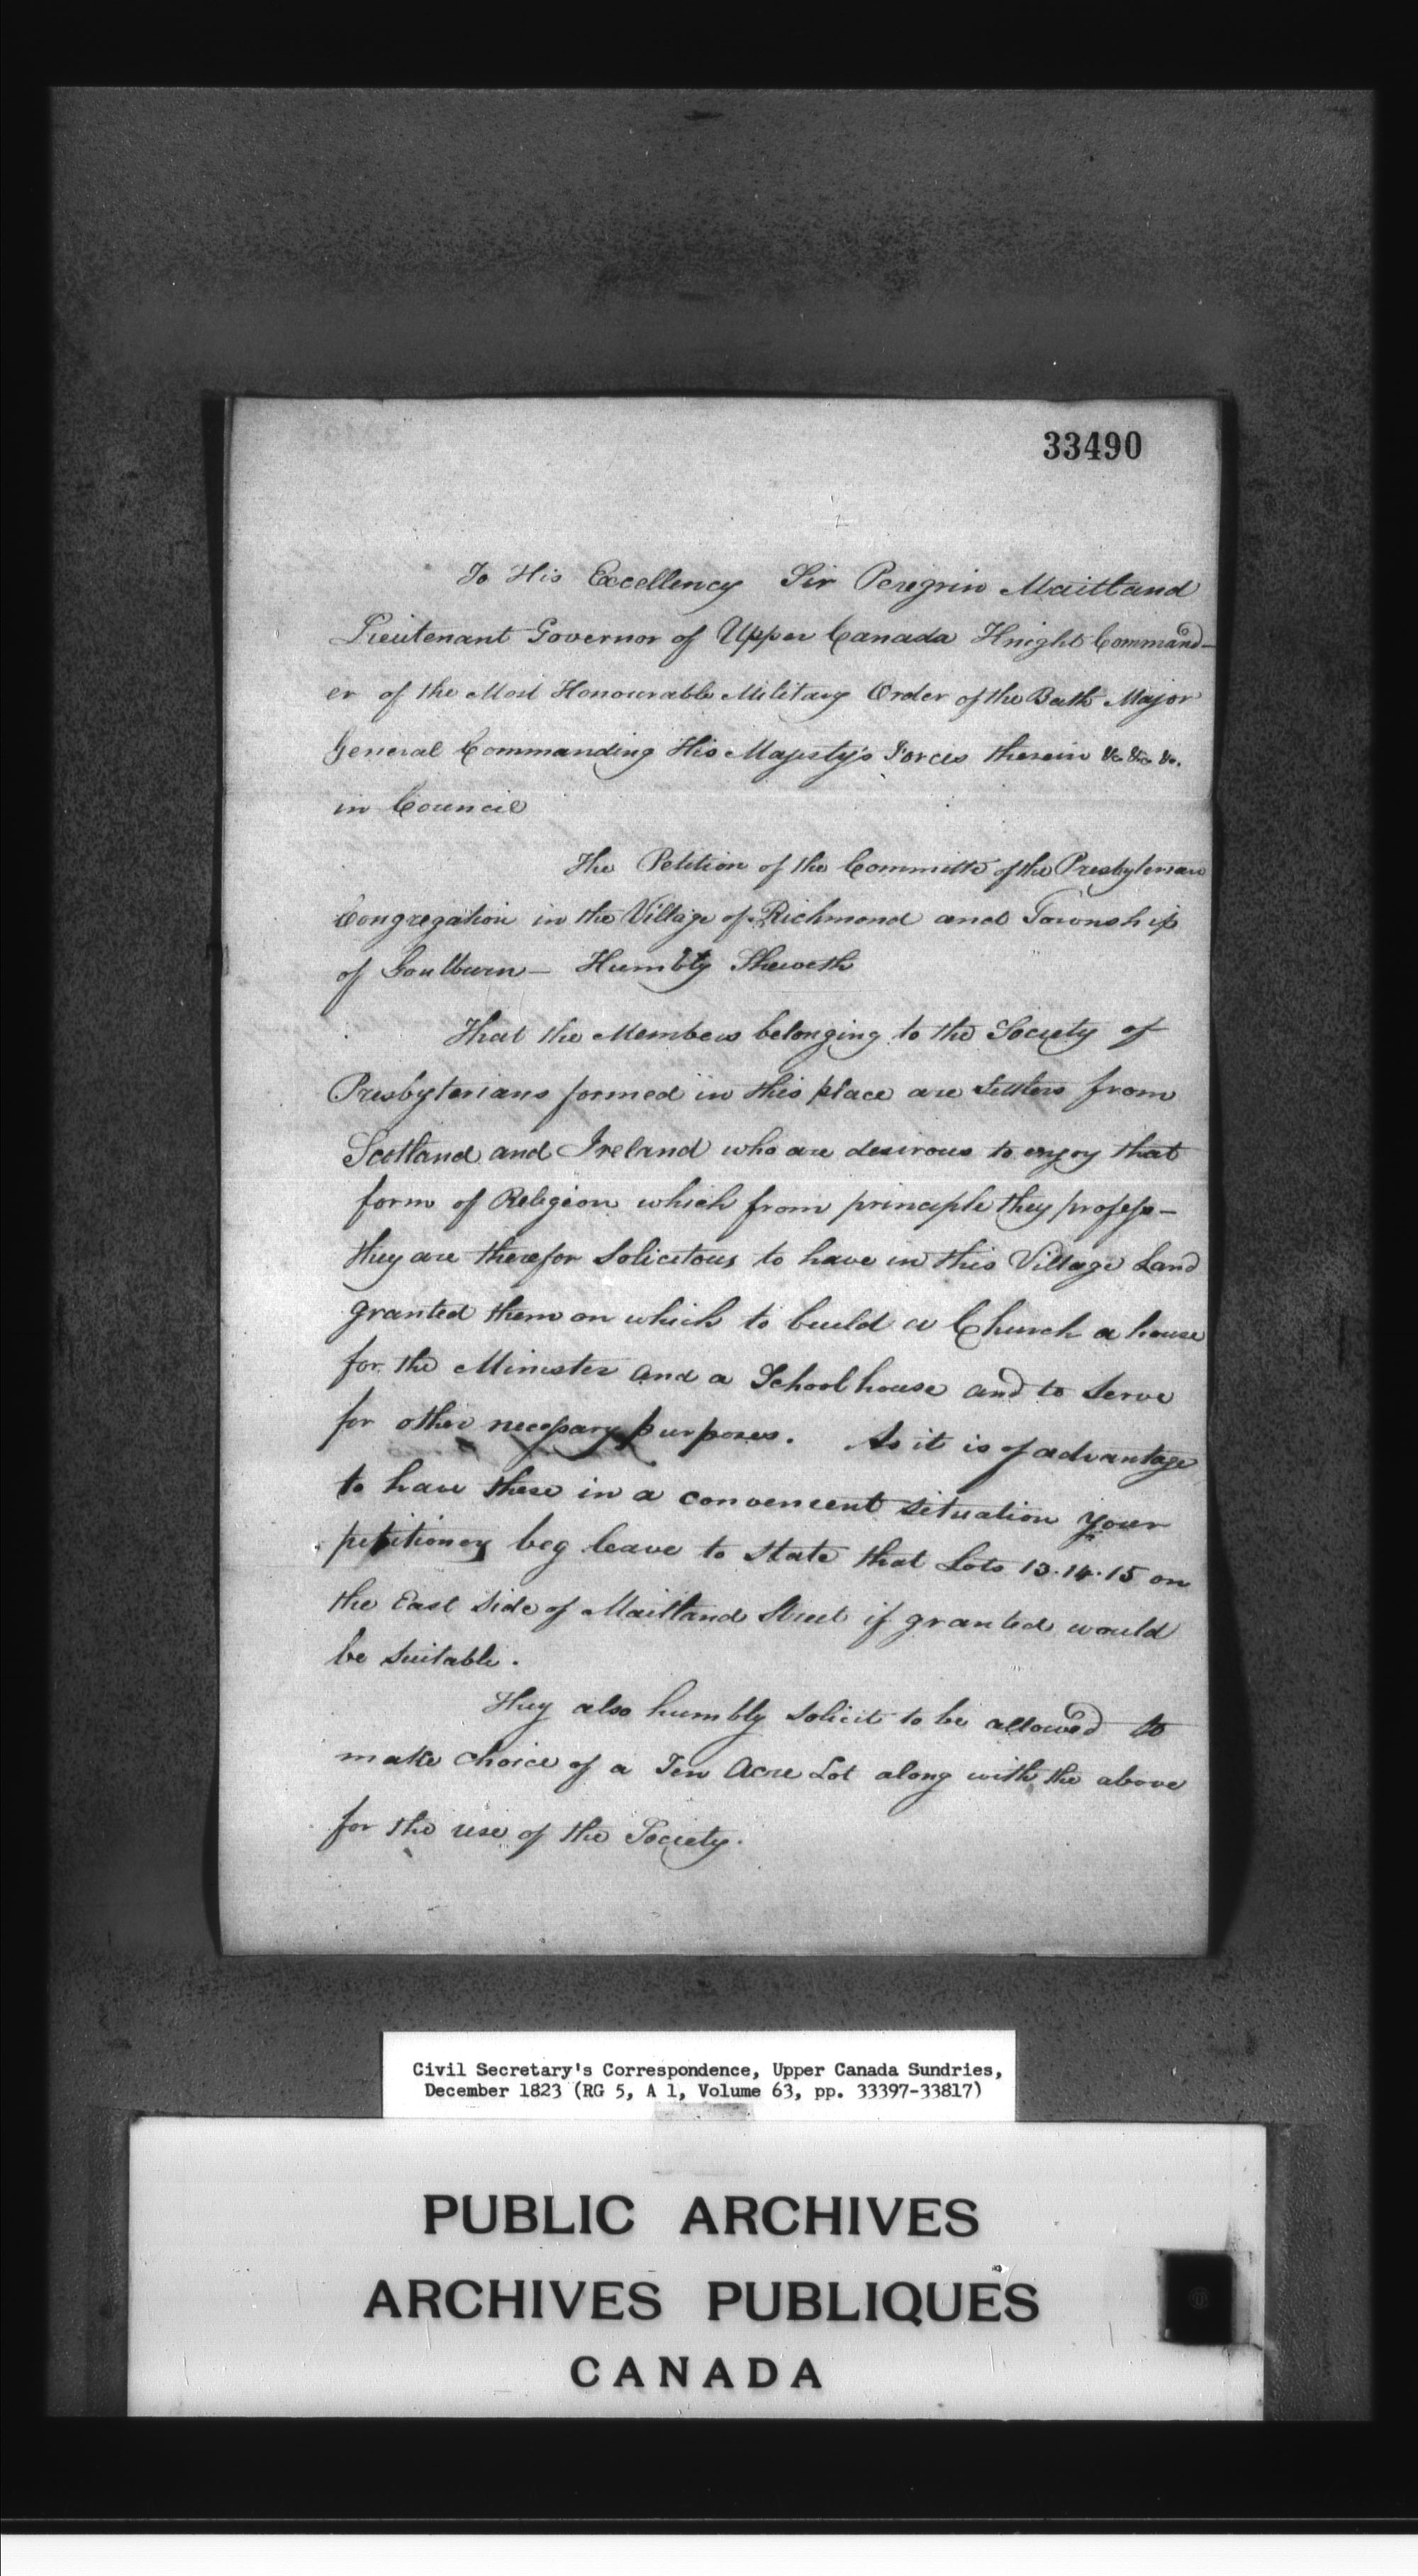 33490
To His Excellency Sir Peregrin Maitland
Lieutenant Governor of Upper Canada Knight Command-
er of the Most Honourable Military Order of the Bath Major
General Commanding His Majesty's Forces therein &c &c &c.
in Council
The Petition of the Committe of the Presbyterian
Congregation in the Village of Richmond and Township
of Goulburn — Humbly Sheweth
That the Members belonging to the Society of
Presbyterians formed in this place are Settlers from
Scotland and Ireland who are desirous to enjoy that
form of Religion which from principle they profess —
they are therefor Solicitous to have in this Village Land
granted them on which to build a Church a house
for the Minister and a School house and to Serve
for other necessary purposes. As it is of advantage
to have these in a convenient situation your
petitioners beg leave to State that Lots 13. 14. 15 on
the East Side of Maitland Street if granted would
be Suitable.
They also humbly Solicit to be allowed to
make choice of a Ten Acre Lot along with the above
for the use of the Society.
Civil Secretary's Correspondence, Upper Canada Sundries,
December 1823 (RG 5, A 1, Volume 63, pp. 33397-33817)
PUBLIC ARCHIVES
ARCHIVES PUBLIQUES
CANADA